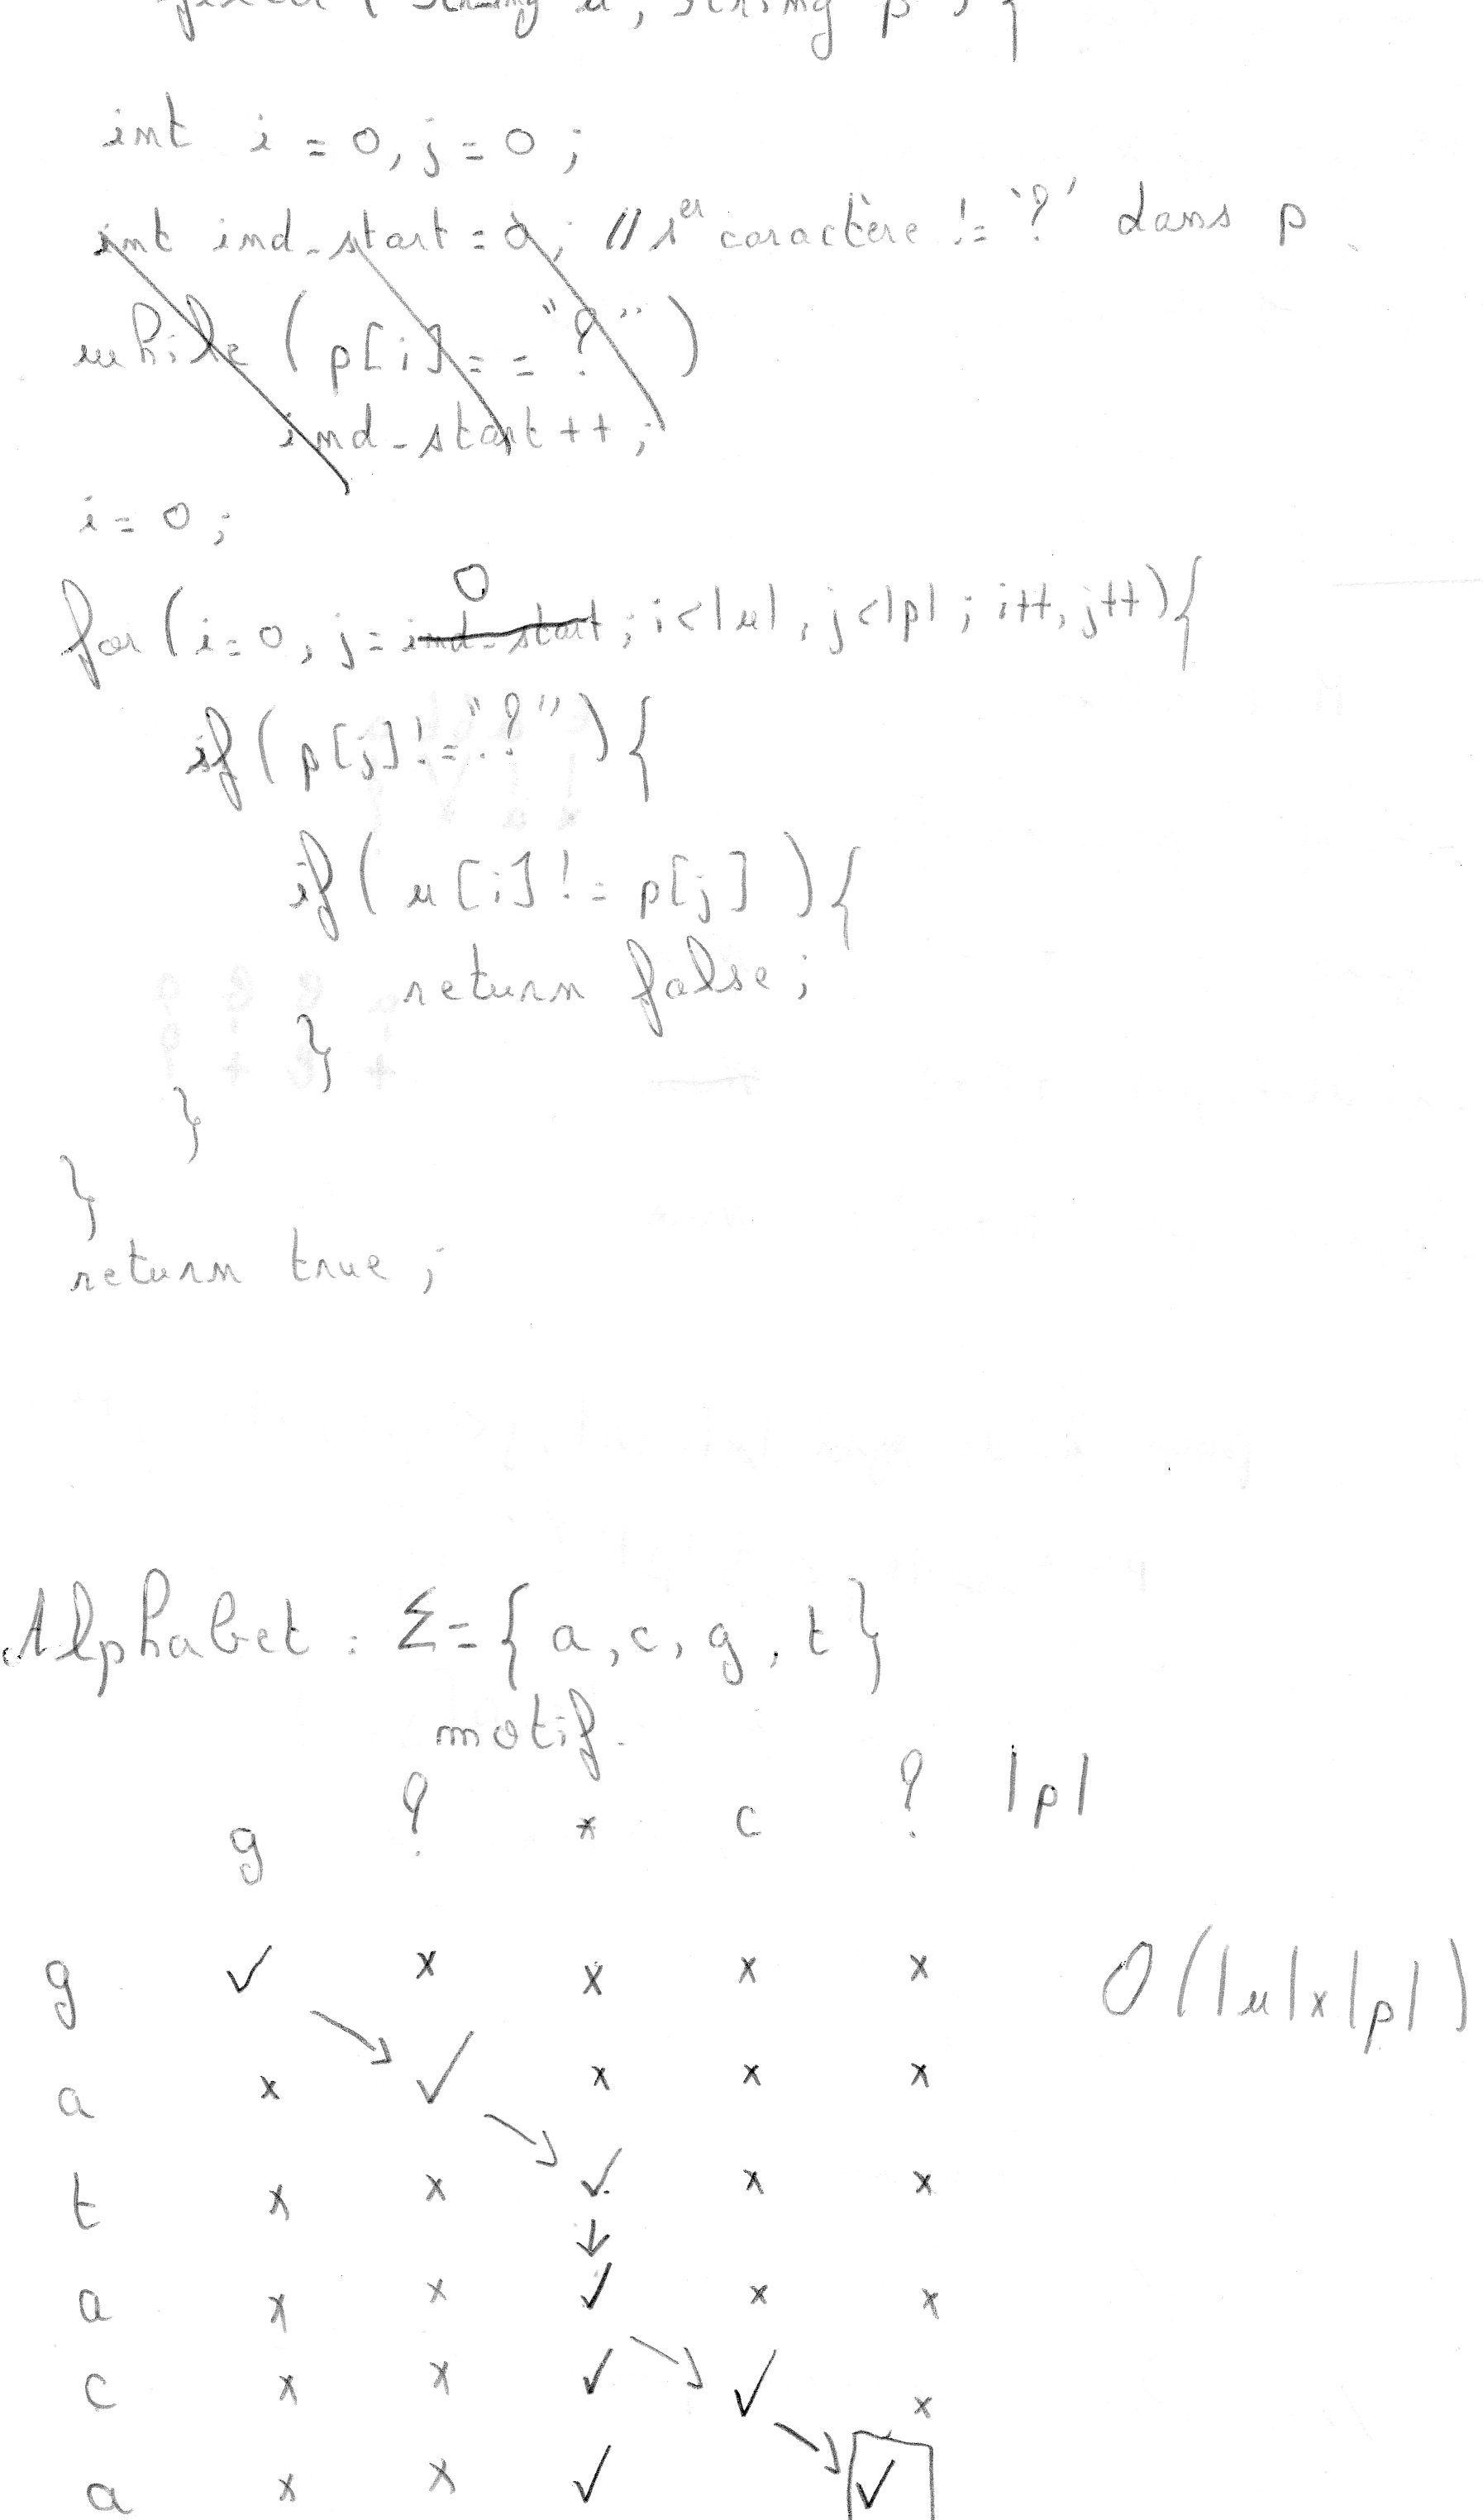 (string u, string p) {
int i = 0, j = 0 ;
int ind_start = 0; // 1er caractère != '?' dans p
while ( p[i] == "?" )
ind_start ++ ;
i = 0 ;
0
for ( i = 0, j = ind_start ; i < |u| , j < |p| ; i++, j++ ) {
if ( p[j] != "?" ) {
if ( u[i] != p[j] ) {
return false ;
}
}
}
return true ;
Alphabet : Σ = { a, c, g, t }
motif
g ? * c ? |p|
g ✓ x x x x O(|u|x|p|)
a x ✓ x x x
t x x ✓ x x
↓
a x x ✓ x x
c x x ✓ ✓ x
a x x ✓ ✓